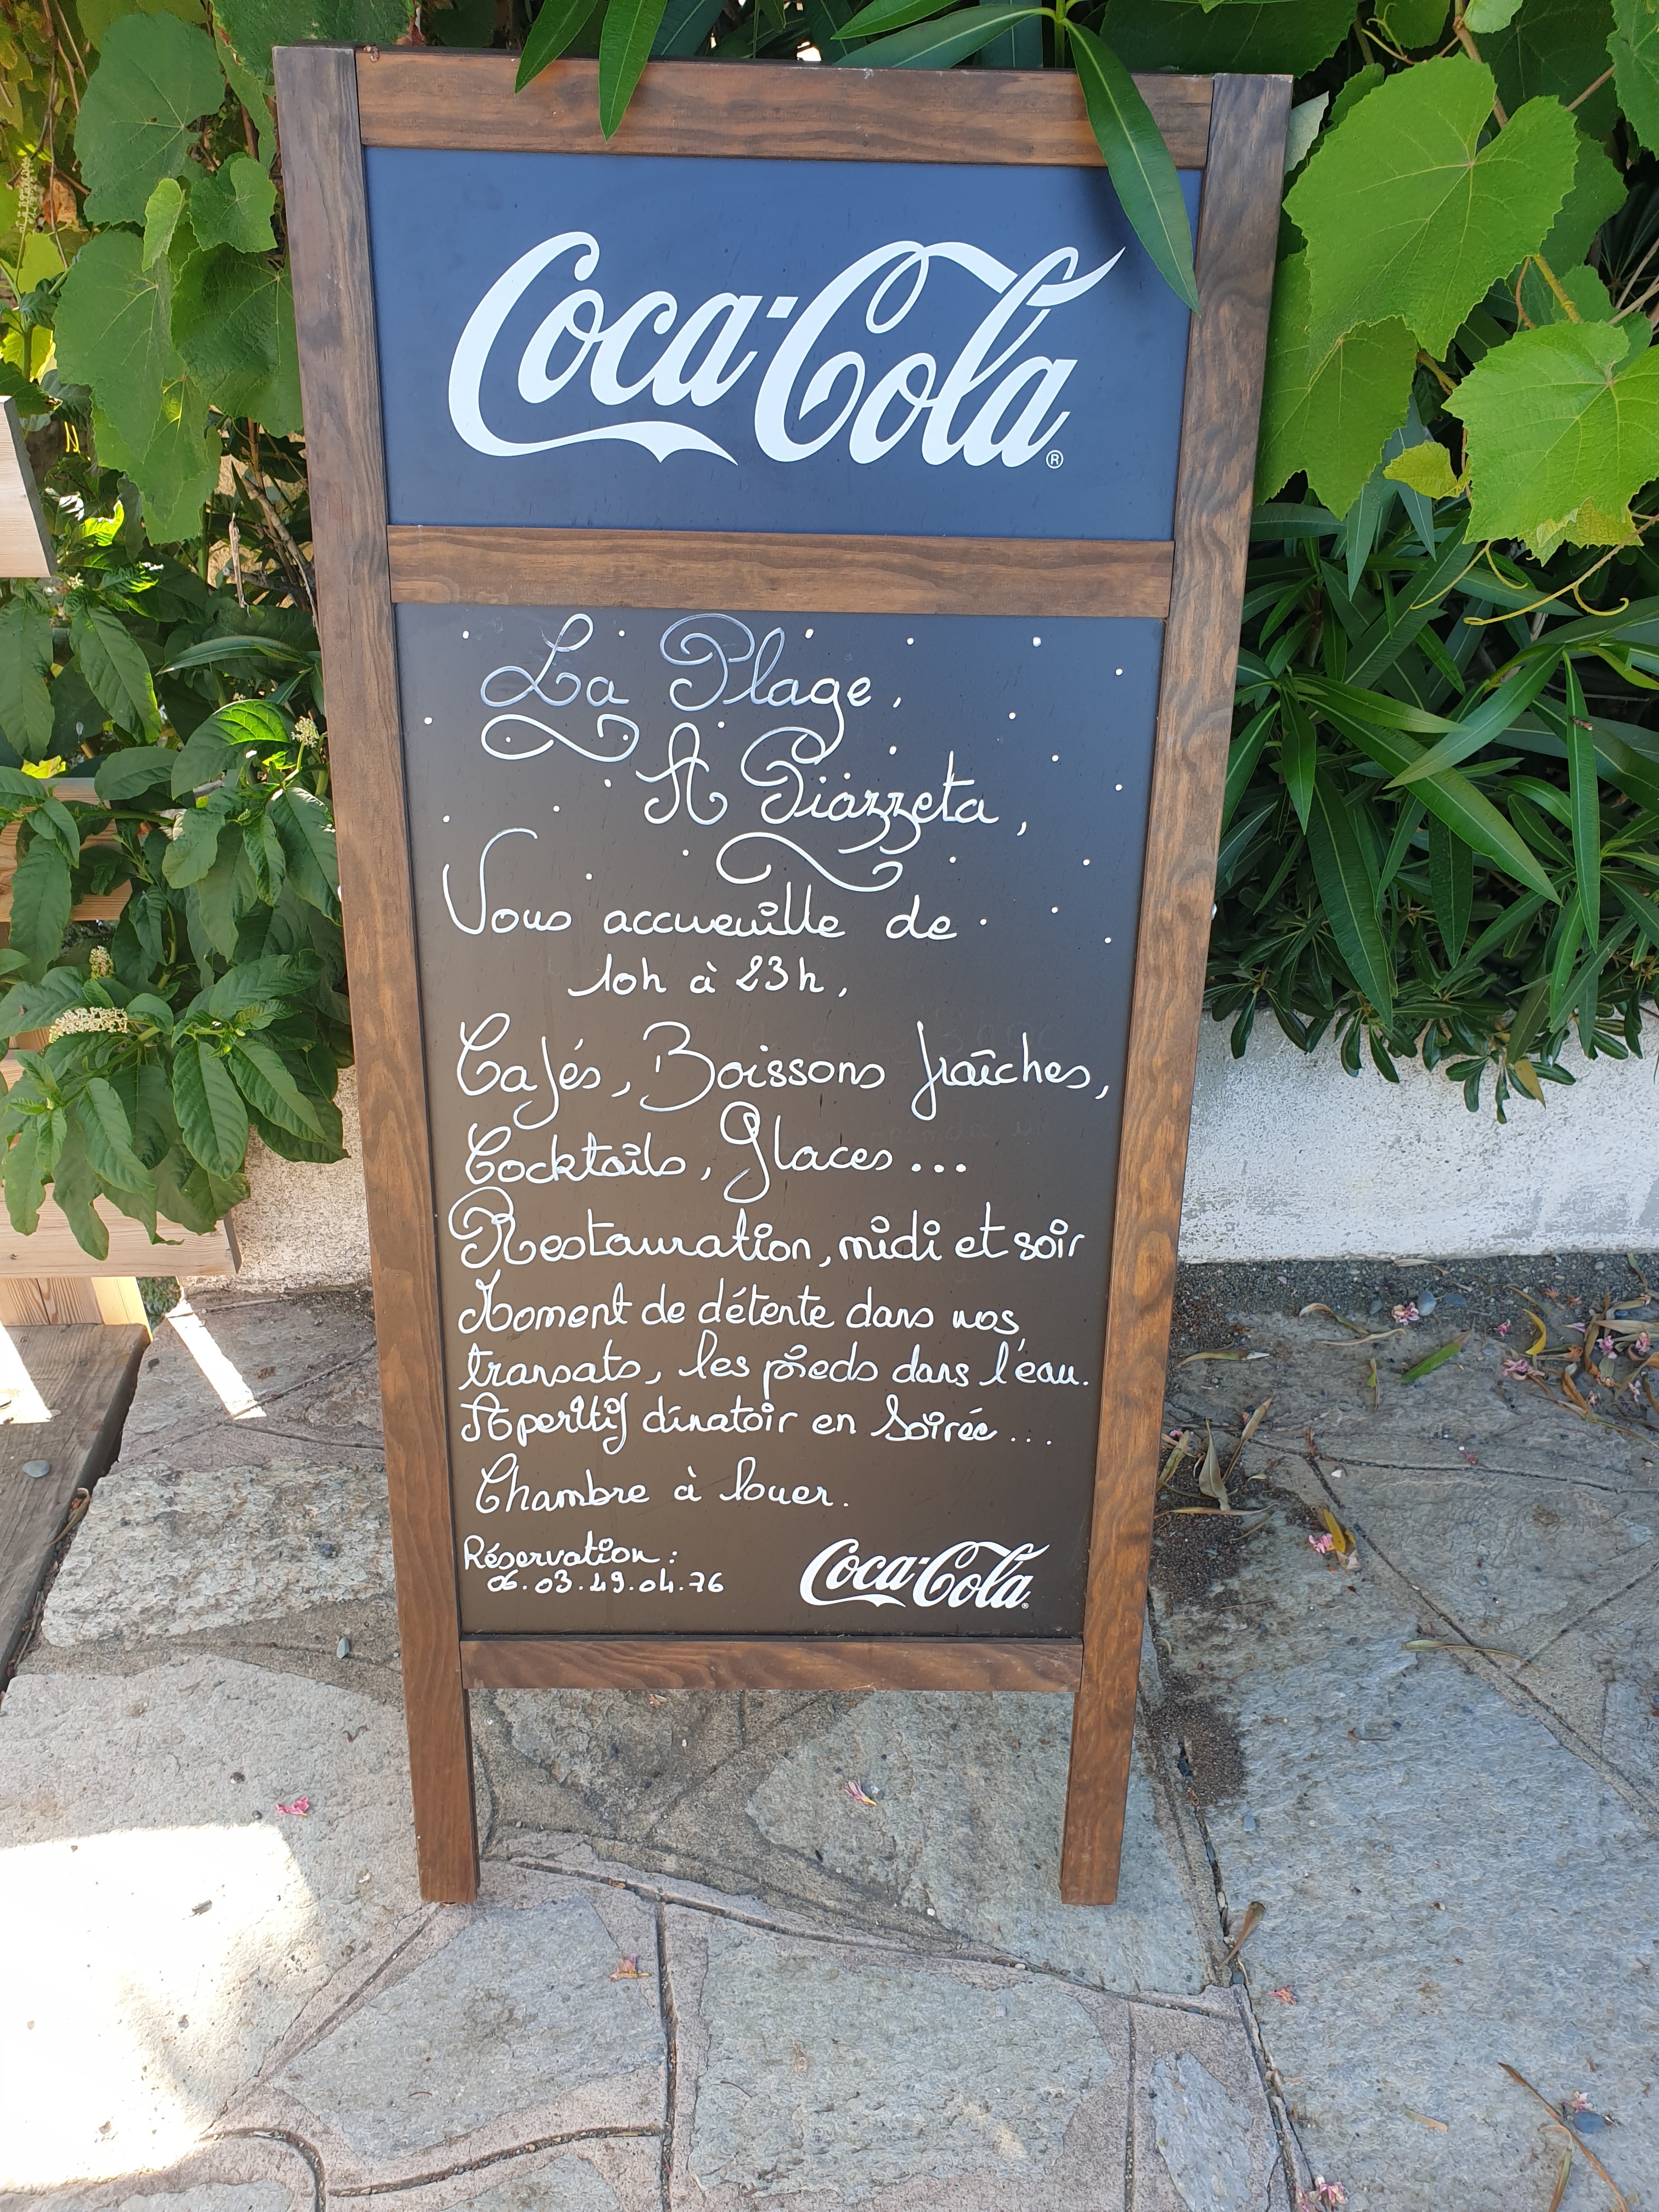 Coca-Cola
La Plage,
A Piazzeta,
Vous accueuille de
10h à 23h,
Cafés, Boissons fraîches,
Cocktails, Glaces...
Restauration, midi et soir
Moment de détente dans nos
transats, les pieds dans l'eau.
Apéritif dînatoir en Soirée...
Chambre à louer.
Réservation :
06.03.49.04.76
Coca-Cola